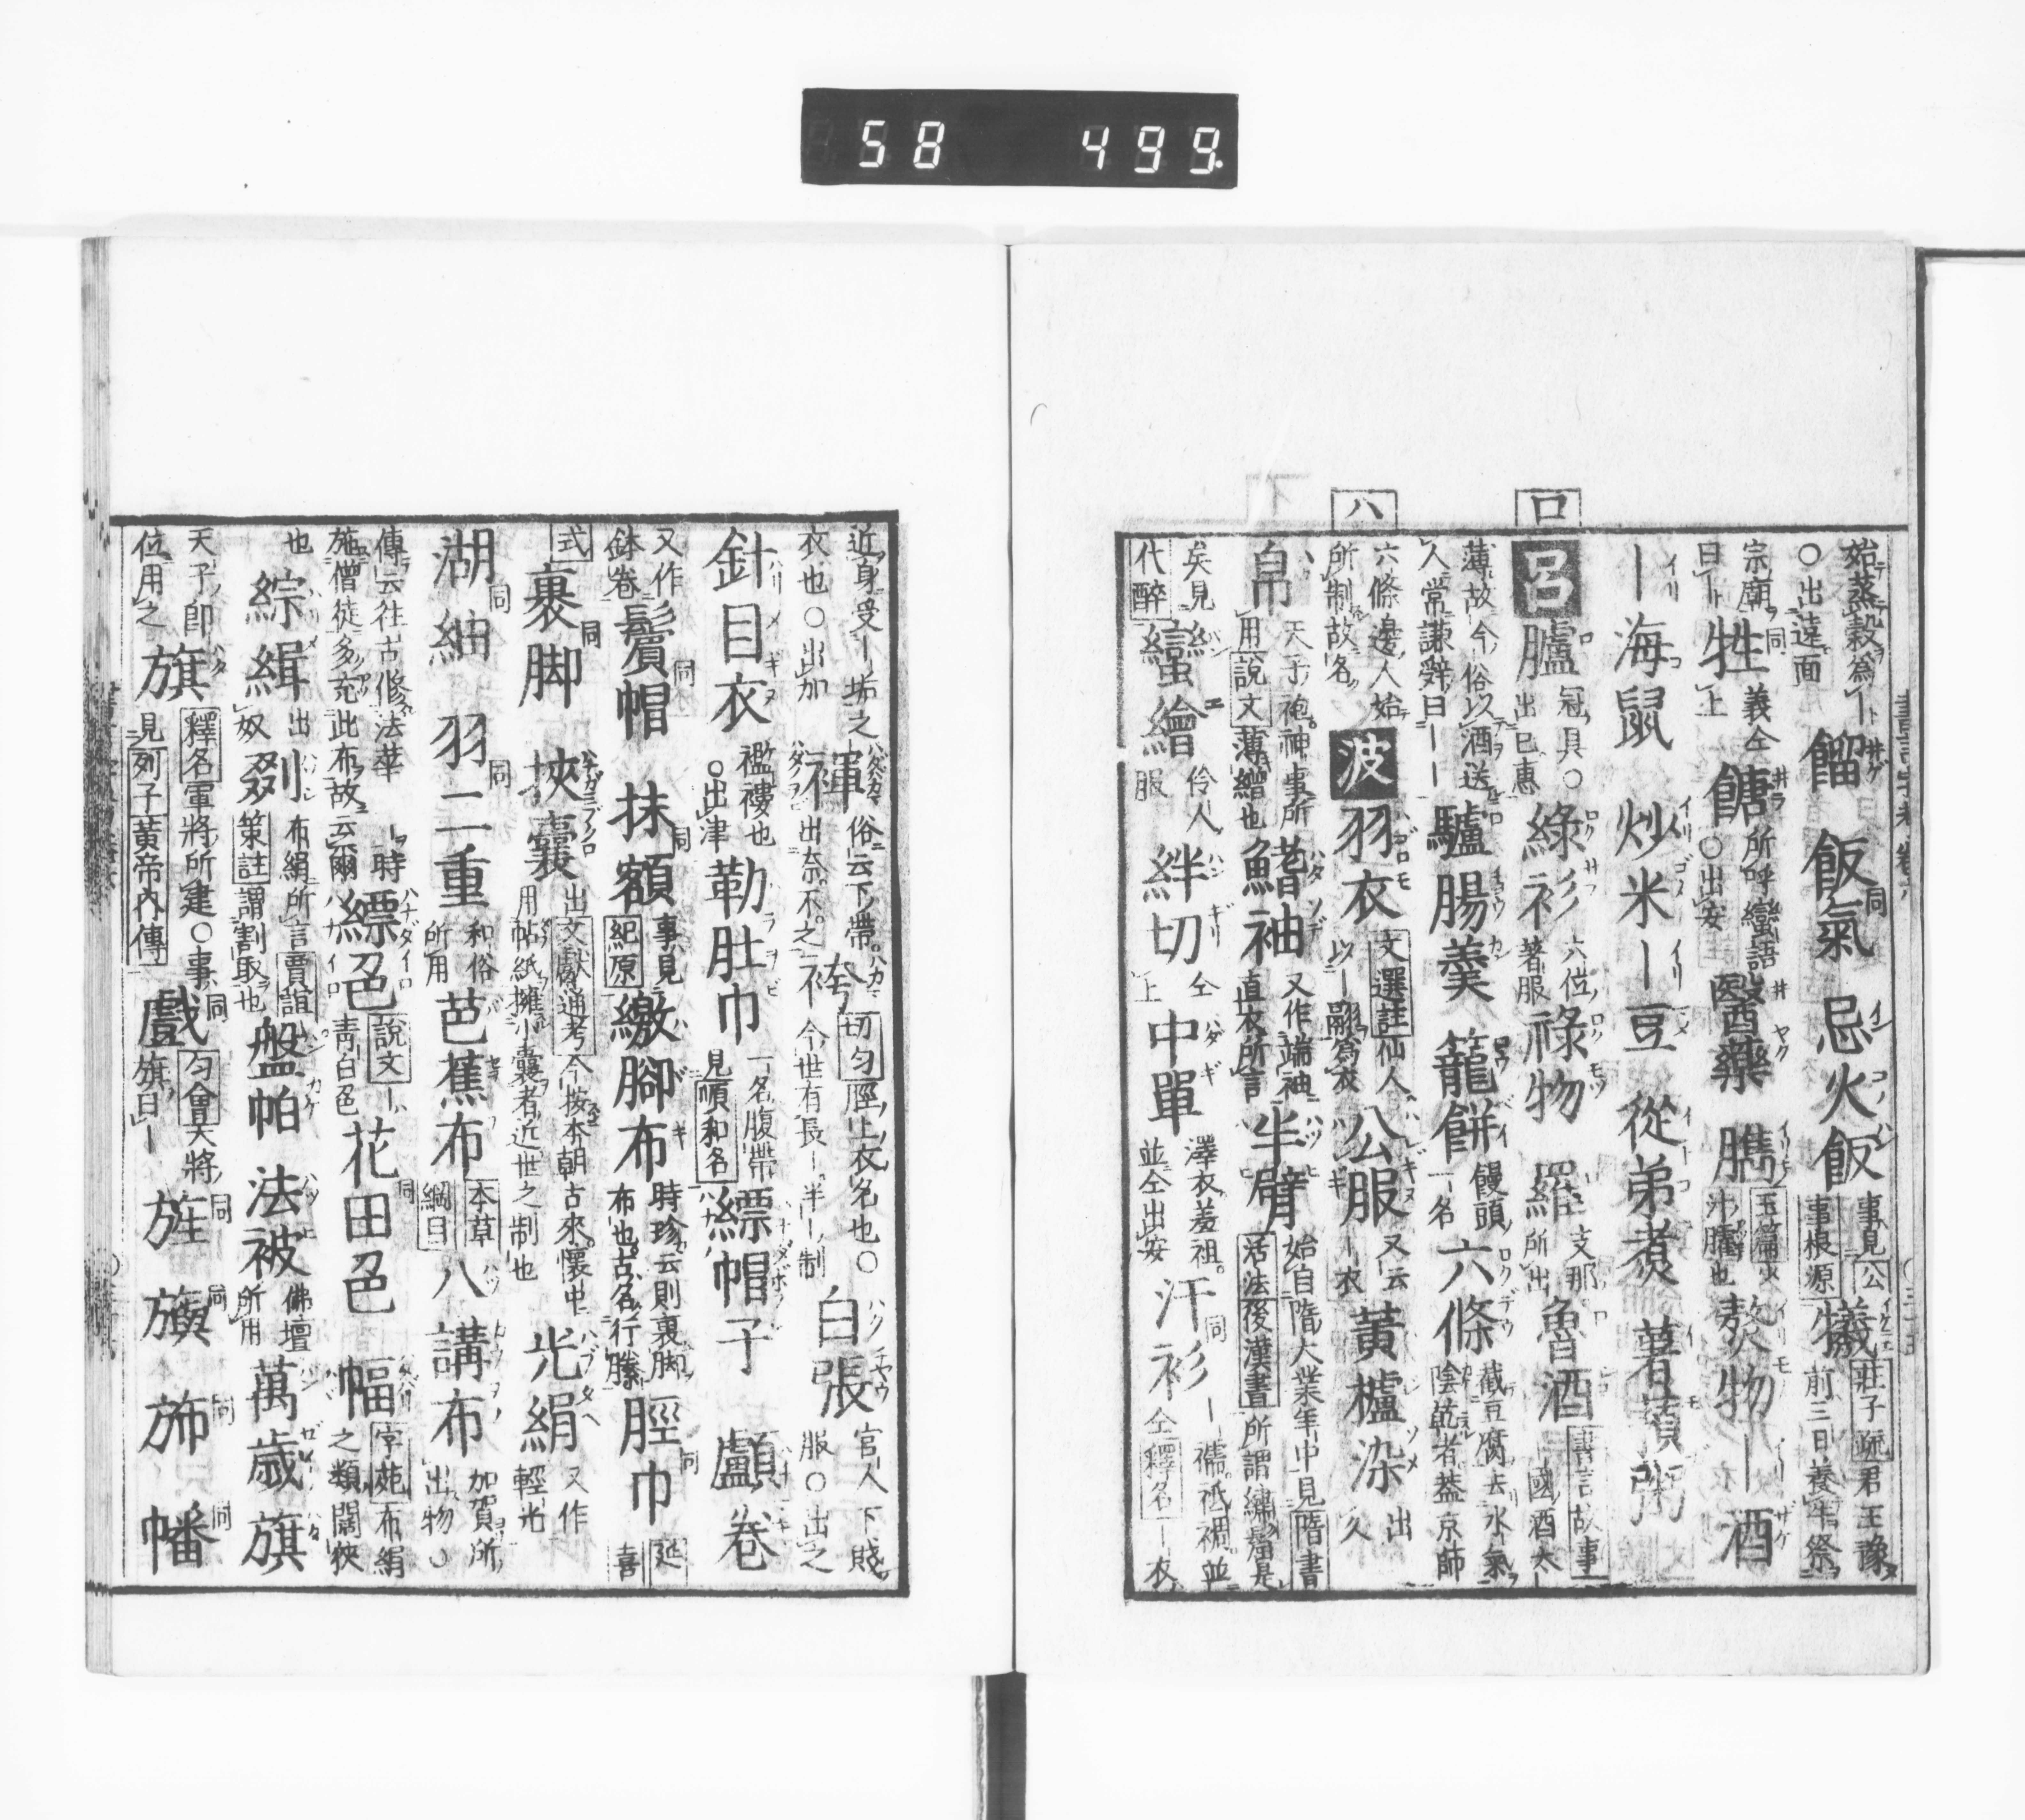 58 499
ロ
ハ
始蒸穀爲ー
○出遠面
餾 飯氣同 忌火飯 事見公事根源 犧 莊子疏君王豫前三日養牛祭
宗廟曰ー
牲同 義仝上 餹 所呼蠻語○出安 醫藥 臇 玉篇 汁臛也 熬物 ー酒
ー海鼠 炒米 ー豆 從弟煮 薯蕷粥
呂 臚 冠具○出巳惠 綠衫 六位著服 祿物 羅 支那所出 魯酒 書言故事 ー國酒太
薄故今俗以酒送人常謙辭曰ーー
驢腸羹 籠餅 饅頭一名 六條 截豆腐去水氣陰乾者蓋京師
六條邊人始所制故名
波 羽衣 文選註仙人以ー翮爲衣 公服 又云ー衣 黃櫨染 出久
帛 天子袍神事所用說文薄繒也 鰭袖 又作端袖直衣所言 半臂 始自隋大業年中見隋書活法後漢書所謂繡䘿是
矣見代醉
蠻繪 伶人服 絆切 仝上 中單 澤衣羞袒並仝出安 汗衫同 ー襦祗裯並仝釋名ー衣
近身受ーー垢之衣也○出加
褌 俗云下帶出奈不之 袴 切匀脛上衣名也○ネ今世有長ー半ー制 白張 官人下賤服○出之
針目衣 襤褸也○出津 勒肚巾 一名腹帶見順和名 縹帽子 顱卷
又作鉢卷
鬢帽同 抹額同 事見紀原 繳腳布 時珍云則裹脚布也古名行縢 脛巾同 延喜
式
裹脚同 挾囊 出文獻通考今按本朝古來懷中用帖紙擁小囊者近世之制也 光絹 又作輕光
湖紬同 羽二重同 和俗所用 芭蕉布 本草綱目 八講布 加賀所出物○
傳云往古修法華ー時施僧徒多充此布故云爾
縹色 說文ー靑白色 花田色同 幅 字苑布絹之類闊狹
也
綜緝 出奴 剟 布絹所言賈誼策註謂割取也 盤帕 法被 佛壇所用 萬歲旗
天子卽位用之
旗 釋名軍將所建○事見列子黃帝內傳 戲同 匀會大將旗曰ー 旌同 旟同 斾同 幡同